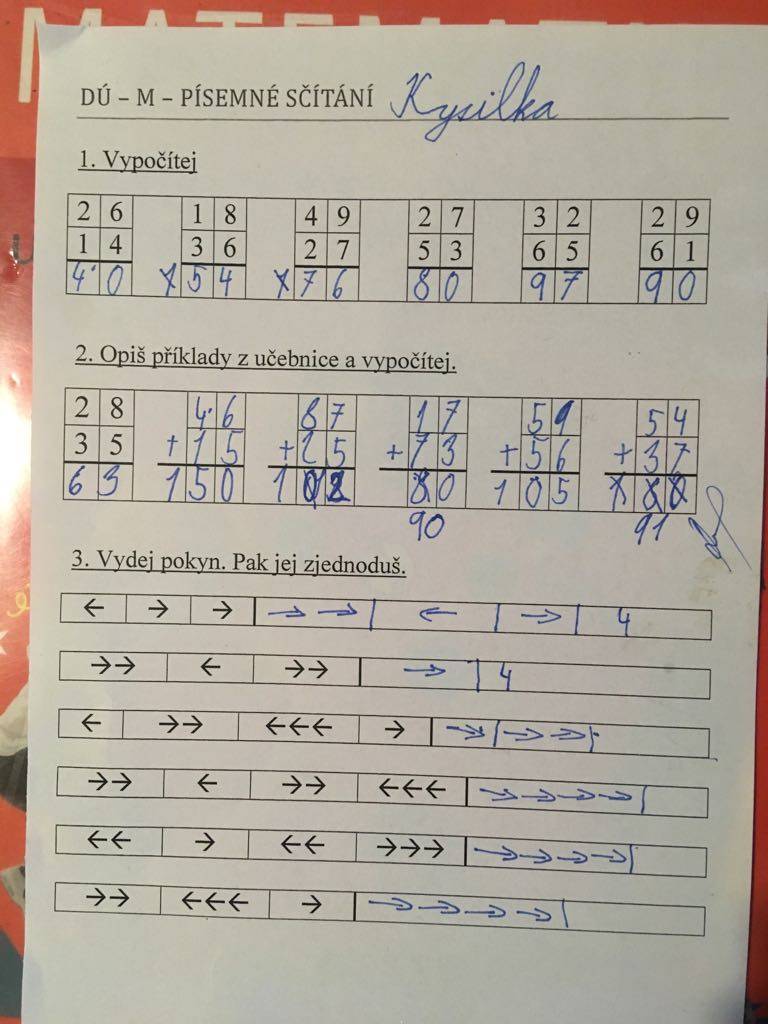 MATEMATI
DÚ – M – PÍSEMNÉ SČÍTÁNÍ Kysilka
1. Vypočítej
2 6 1 8 4 9 2 7 3 2 2 9
1 4 3 6 2 7 5 3 6 5 6 1
4 0 5 4 7 6 8 0 9 7 9 0
2. Opiš příklady z učebnice a vypočítej.
2 8 4 6 8 7 1 7 5 9 5 4
3 5 + 1 5 + 1 5 + 7 3 + 5 6 + 3 7
6 3 1 5 0 1 0 2 8 0 1 0 5 1 8 0
90 91
3. Vydej pokyn. Pak jej zjednoduš.
← → → → → | ← | → | 4
→→ ← →→ → | 4
← →→ ←←← → → | → → |
→→ ← →→ ←←← → → → → |
←← → ←← →→→ → → → → |
→→ ←←← → → → → → |